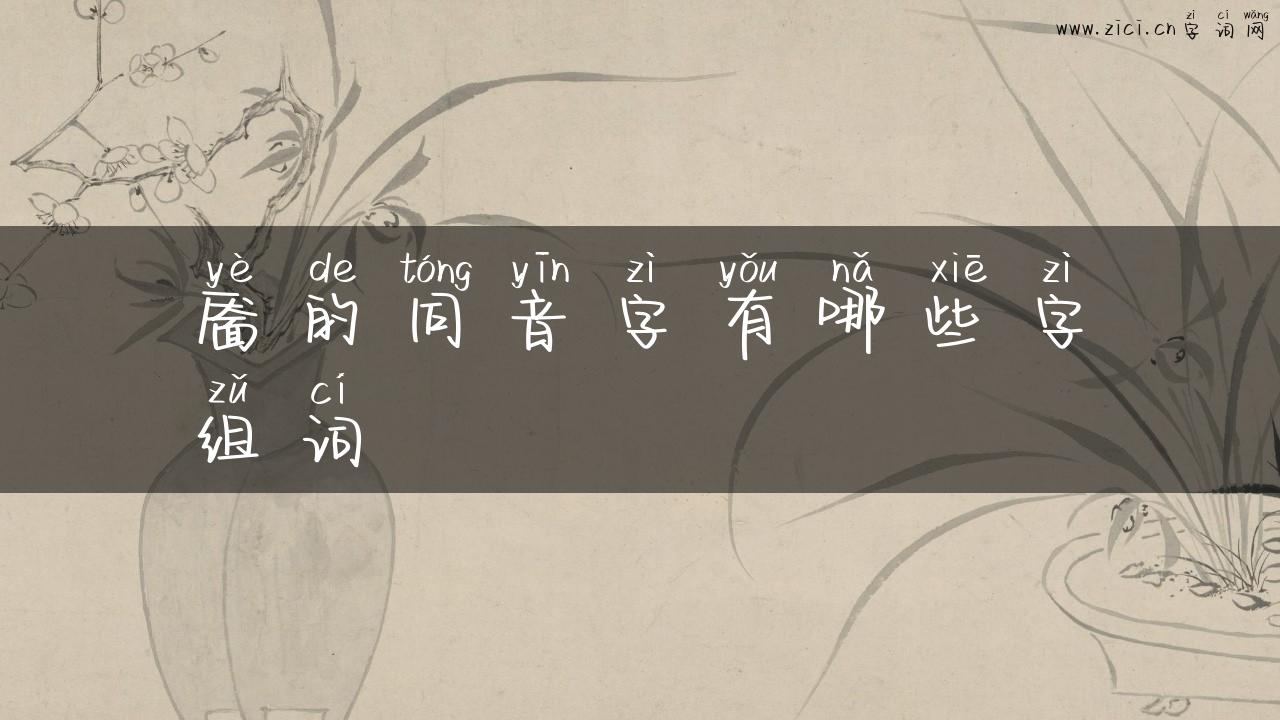 zì cí wǎng
www.zici.cn 字词网
yè de tóng yīn zì yǒu nǎ xiē zì
靥的同音字有哪些字
zǔ cí
组词